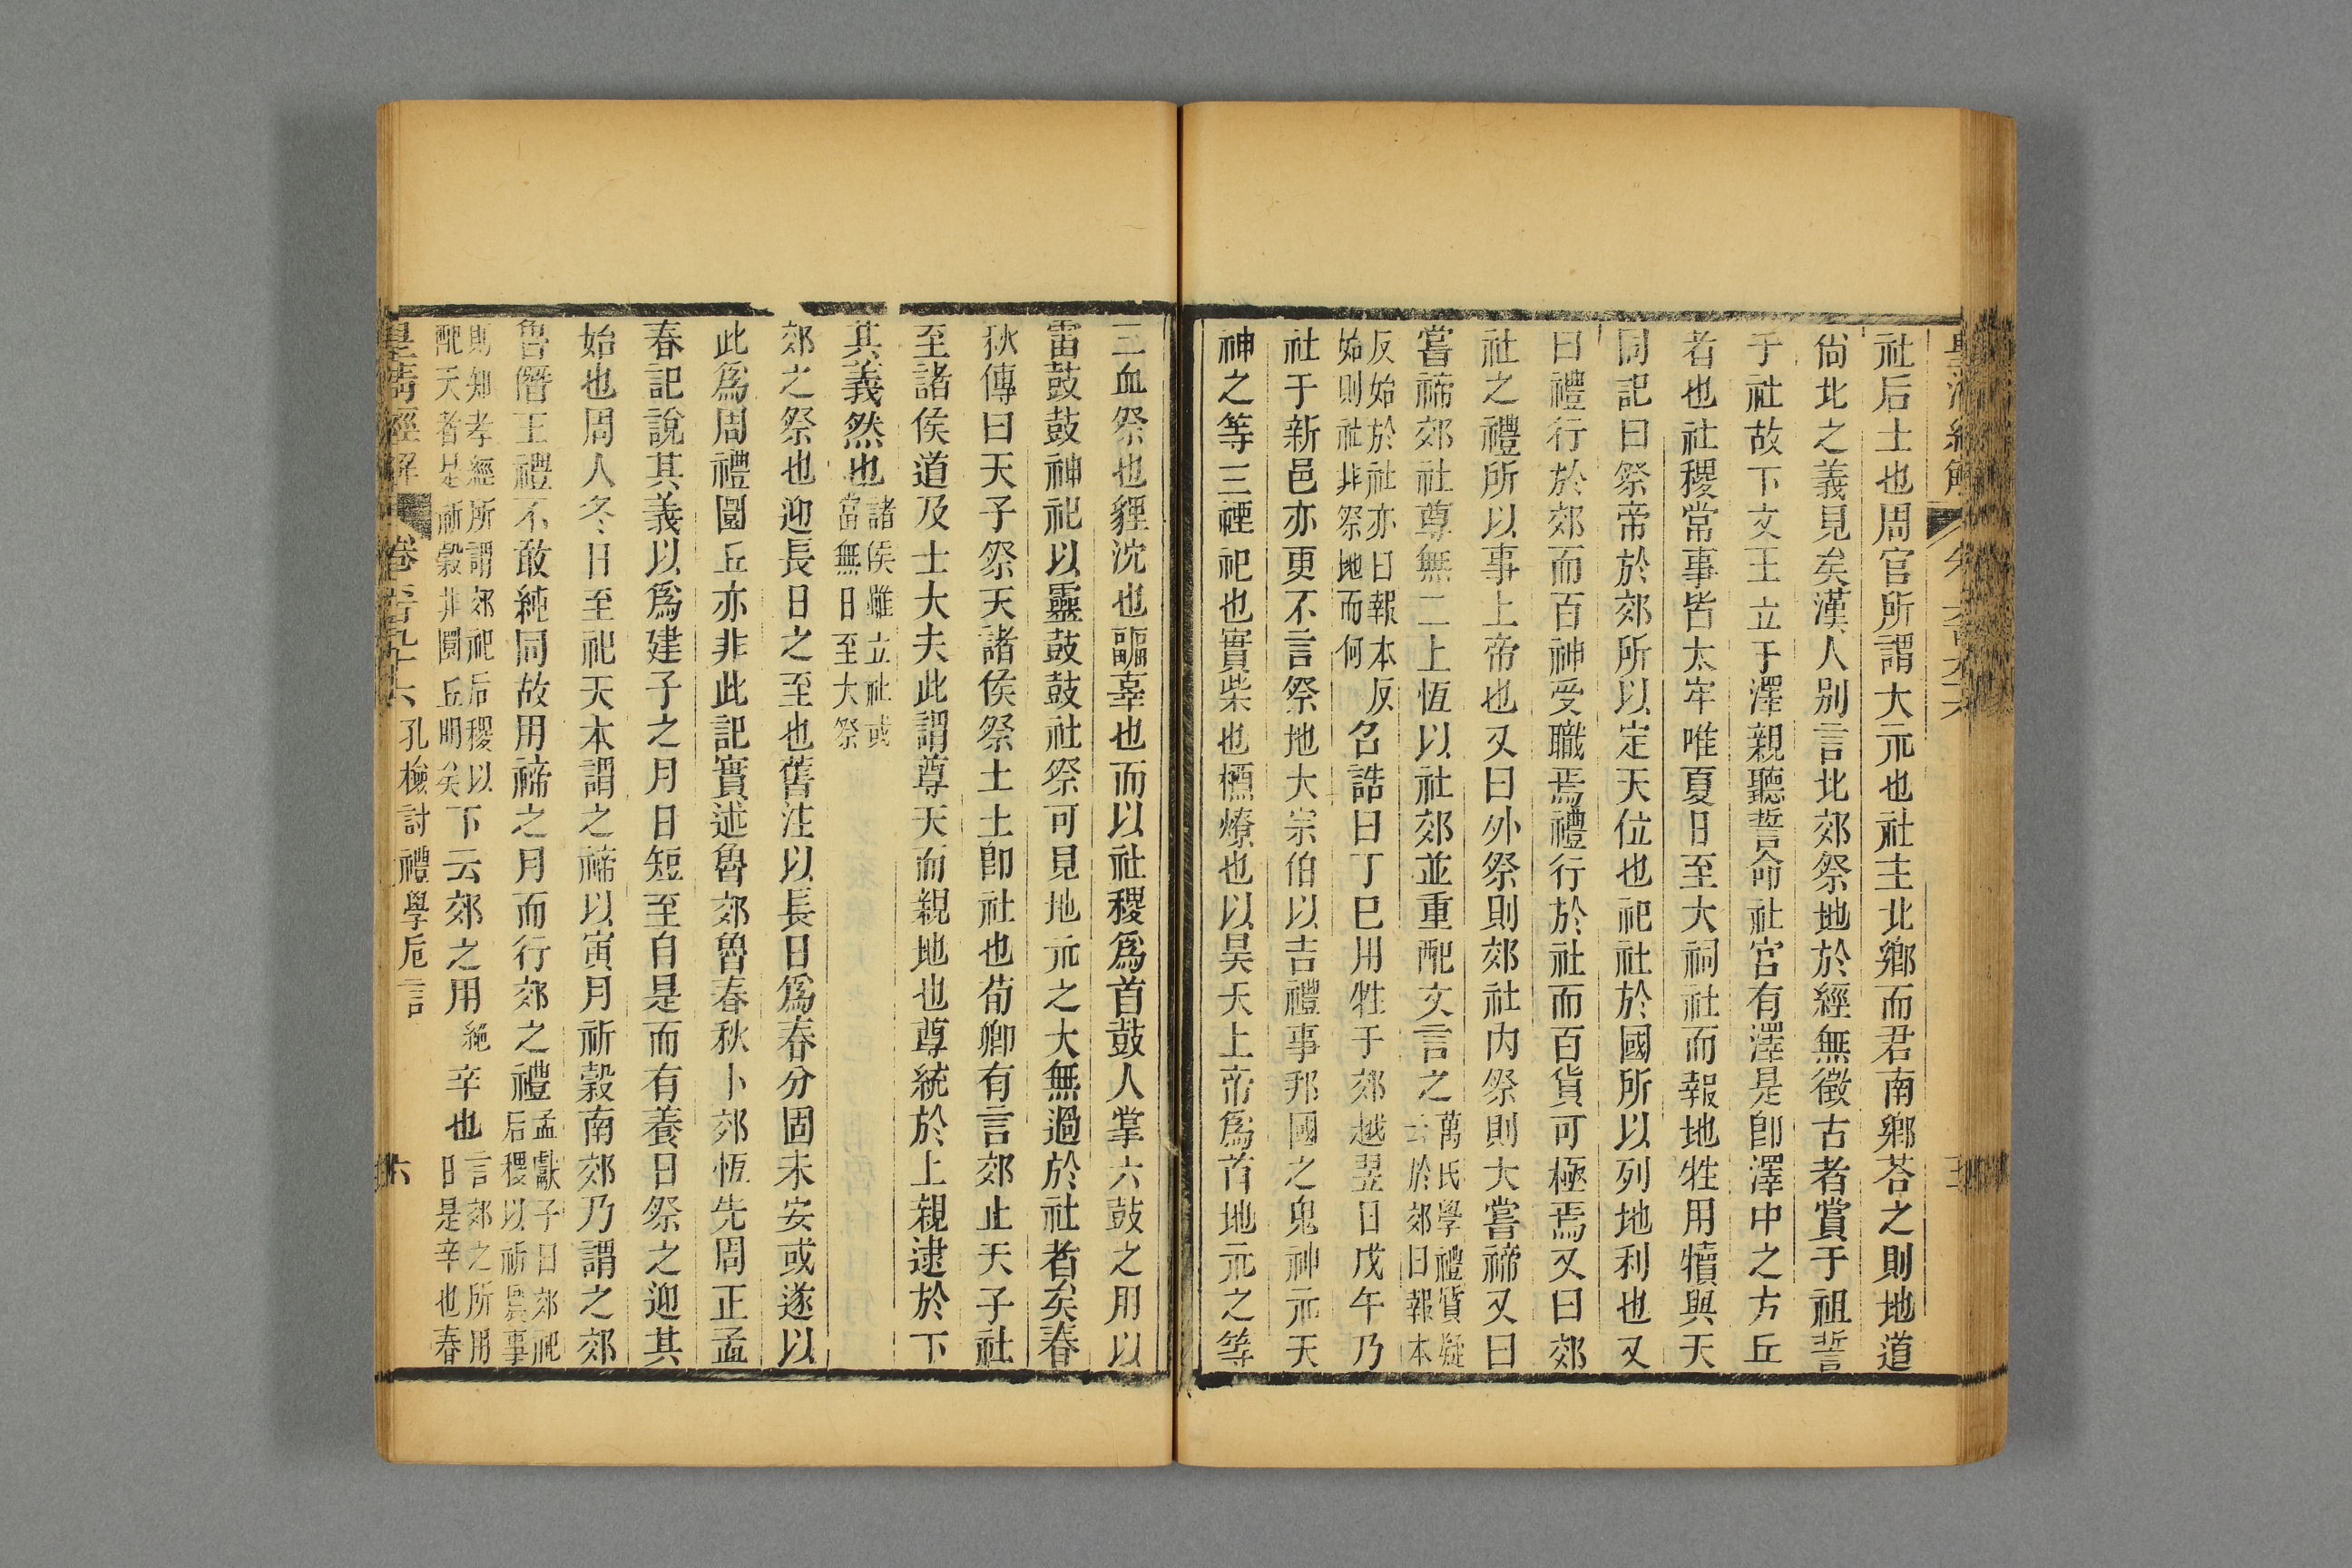 社后土也周官所謂大元也社主北鄉而君南鄉荅之則地道
尙北之義見矣漢人別言北郊祭地於經無徵古者賞于祖誓
于社故下文王立于澤親聽誓命社宮有澤是卽澤中之方丘
者也社稷常事皆太牢唯夏日至大祠社而報地牲用犢與天
同記曰祭帝於郊所以定天位也祀社於國所以列地利也又
曰禮行於郊而百神受職焉禮行於社而百貨可極焉又曰郊
社之禮所以事上帝也又曰外祭則郊社內祭則大嘗禘又曰
嘗禘郊社尊無二上恆以社郊並重配文言之萬氏學禮質疑云於郊曰報本
反始於社亦曰報本反始則社非祭地而何召誥曰丁巳用牲于郊越翌日戊午乃
社于新邑亦更不言祭地大宗伯以吉禮事邦國之鬼神元天
神之等三禋祀也實柴也槱燎也以昊天上帝爲首地元之等
三血祭也貍沈也疈辜也而以社稷爲首鼓人掌六鼓之用以
雷鼓鼓神祀以靈鼓鼓社祭可見地元之大無過於社者矣春
秋傳曰天子祭天諸侯祭土土卽社也荀卿有言郊止天子社
至諸侯道及士大夫此謂尊天而親地也尊統於上親逮於下
其義然也諸侯雖立社或當無日至大祭
郊之祭也迎長日之至也舊注以長日爲春分固未安或遂以
此爲周禮圜丘亦非此記實述魯郊魯春秋卜郊恆先周正孟
春記說其義以爲建子之月日短至自是而有養日祭之迎其
始也周人冬日至祀天本謂之禘以寅月祈穀南郊乃謂之郊
魯僭王禮不敢純同故用禘之月而行郊之禮孟獻子曰郊祀后稷以祈農事
則知孝經所謂郊祀后稷以配天者是祈穀非圜丘明矣下云郊之用絕辛也言郊之所用日是辛也春
皇淸經解 卷六百九十六 孔檢討禮學卮言 六